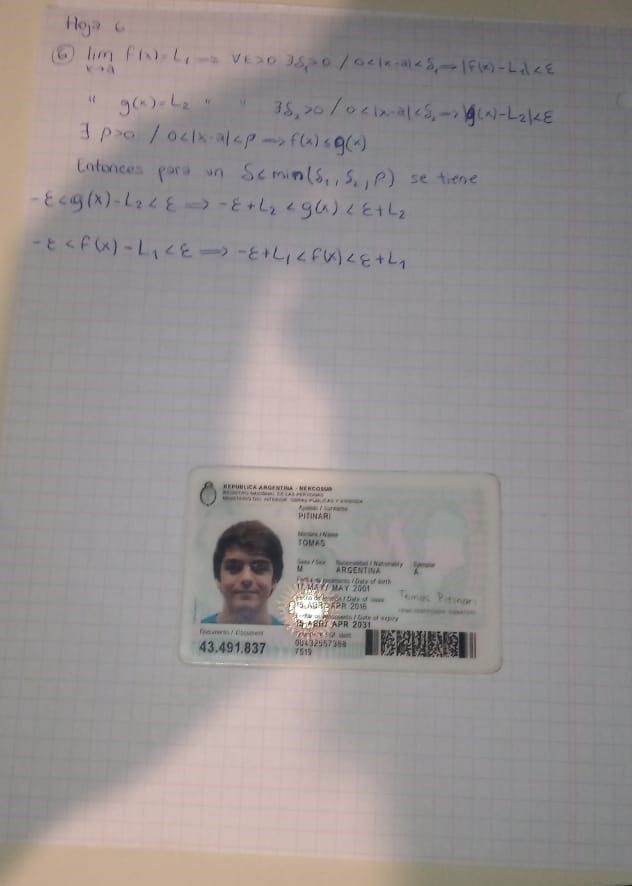 Hoja 6
⑥ lim x→a f(x)=L₁ ⟹ ∀ε>0 ∃δ₁>0 / 0<|x-a|<δ₁ ⟹ |f(x)-L₁|<ε
" g(x)=L₂ " " ∃δ₂>0 / 0<|x-a|<δ₂ ⟹ |g(x)-L₂|<ε
∃ ρ>0 / 0<|x-a|<ρ ⟹ f(x)≤g(x)
Entonces para un δ<min(δ₁, δ₂, ρ) se tiene
-ε<g(x)-L₂<ε ⟹ -ε+L₂<g(x)<ε+L₂
-ε<f(x)-L₁<ε ⟹ -ε+L₁<f(x)<ε+L₁
REPUBLICA ARGENTINA - MERCOSUR
REGISTRO NACIONAL DE LAS PERSONAS
MINISTERIO DEL INTERIOR, OBRAS PUBLICAS Y VIVIENDA
Apellido / Surname
PITINARI
Nombre / Name
TOMAS
Sexo / Sex Nacionalidad / Nationality Ejemplar
M ARGENTINA A
Fecha de nacimiento / Date of birth
17 MAY/ MAY 2001
Fecha de emisión / Date of issue
15 ABR/ APR 2016
Tomas Pitinari
Fecha de vencimiento / Date of expiry
15 ABR/ APR 2031
Documento / Document
43.491.837
7519